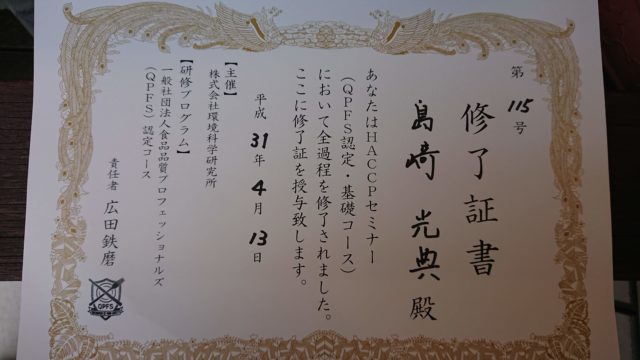 修了証書
第115号
島﨑光典殿
あなたはHACCPセミナー
(QPFS認定・基礎コース)
において全過程を修了されました。
ここに修了証を授与致します。
平成31年4月13日
【主催】
株式会社環境科学研究所
【研修プログラム】
一般社団法人食品品質プロフェッショナルズ
(QPFS)認定コース
責任者 広田鉄磨
QPFS